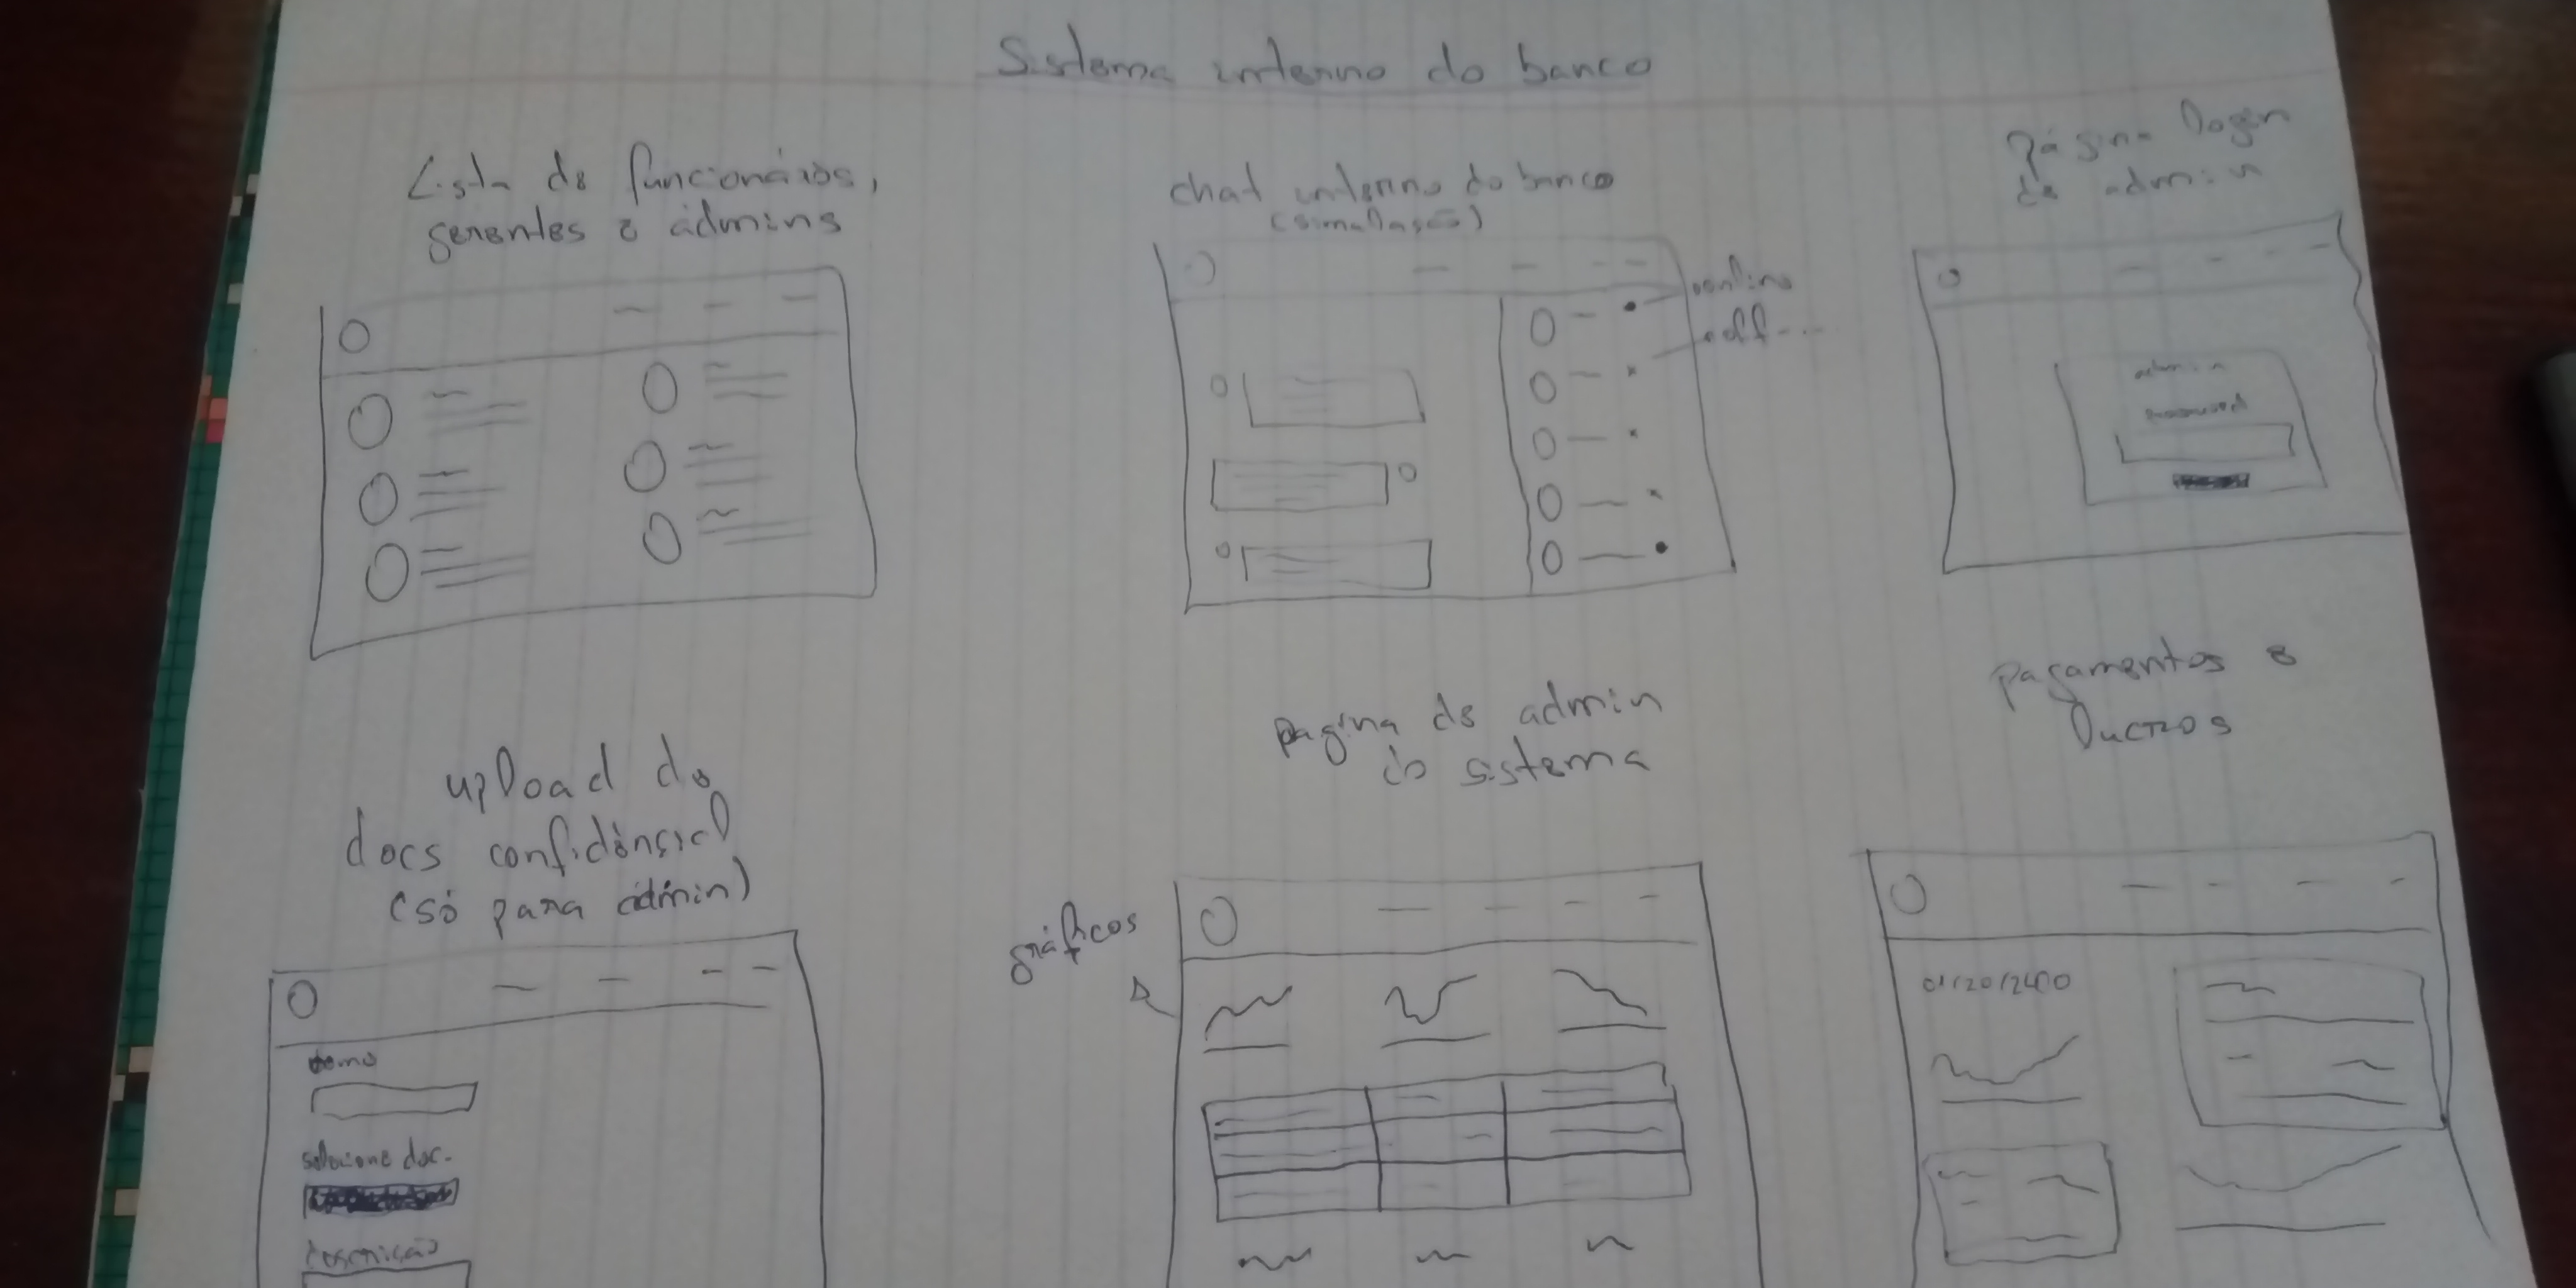 Sistema interno do banco
Lista de funcionários,
gerentes e admins
chat interno do banco
(simulação)
online
off...
página login
de admin
admin
password
upload de
docs confidênsial
(só para admin)
selecione doc.
descrição
pagina de admin
do sistema
gráficos
pagamentos e
lucros
01/20/2400